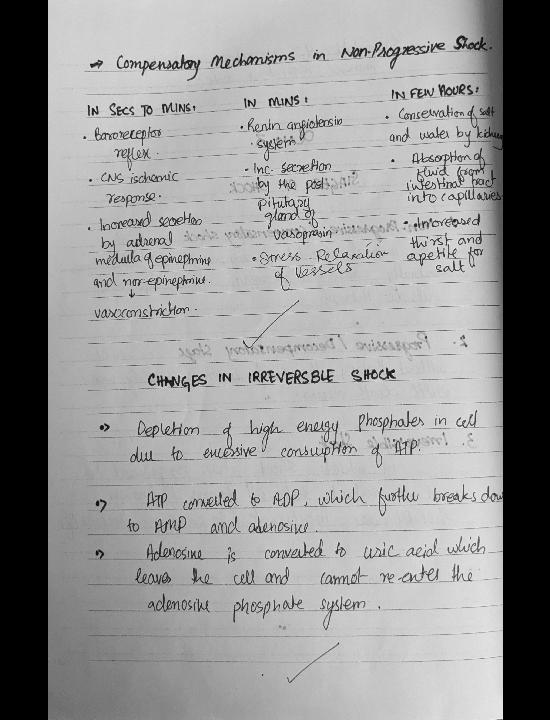 → Compensatory Mechanisms in Non-Progressive Shock.
IN SECS TO MINS:
• Baroreceptor
reflex.
• CNS ischemic
response.
• Increased secretion
by adrenal
medulla of epinephrine
and nor-epinephrine.
↓
vasoconstriction.
IN MINS:
• Renin angiotensin
system
• Inc. secretion
by the post
pitutary
gland of
vasopressin
• Stress - Relaxation
of vessels
IN FEW HOURS:
• Conservation of salt
and water by kidney
• Absorption of
fluid from
intestinal tract
into capillaries
• Increased
thirst and
apetite for
salt
CHANGES IN IRREVERSBLE SHOCK
•) Depletion of high energy Phosphates in cell
due to excessive consumption of ATP.
•) ATP converted to ADP, which further breaks down
to AMP and adenosine.
•) Adenosine is converted to uric acid which
leaves the cell and cannot re-enter the
adenosine phosphate system.